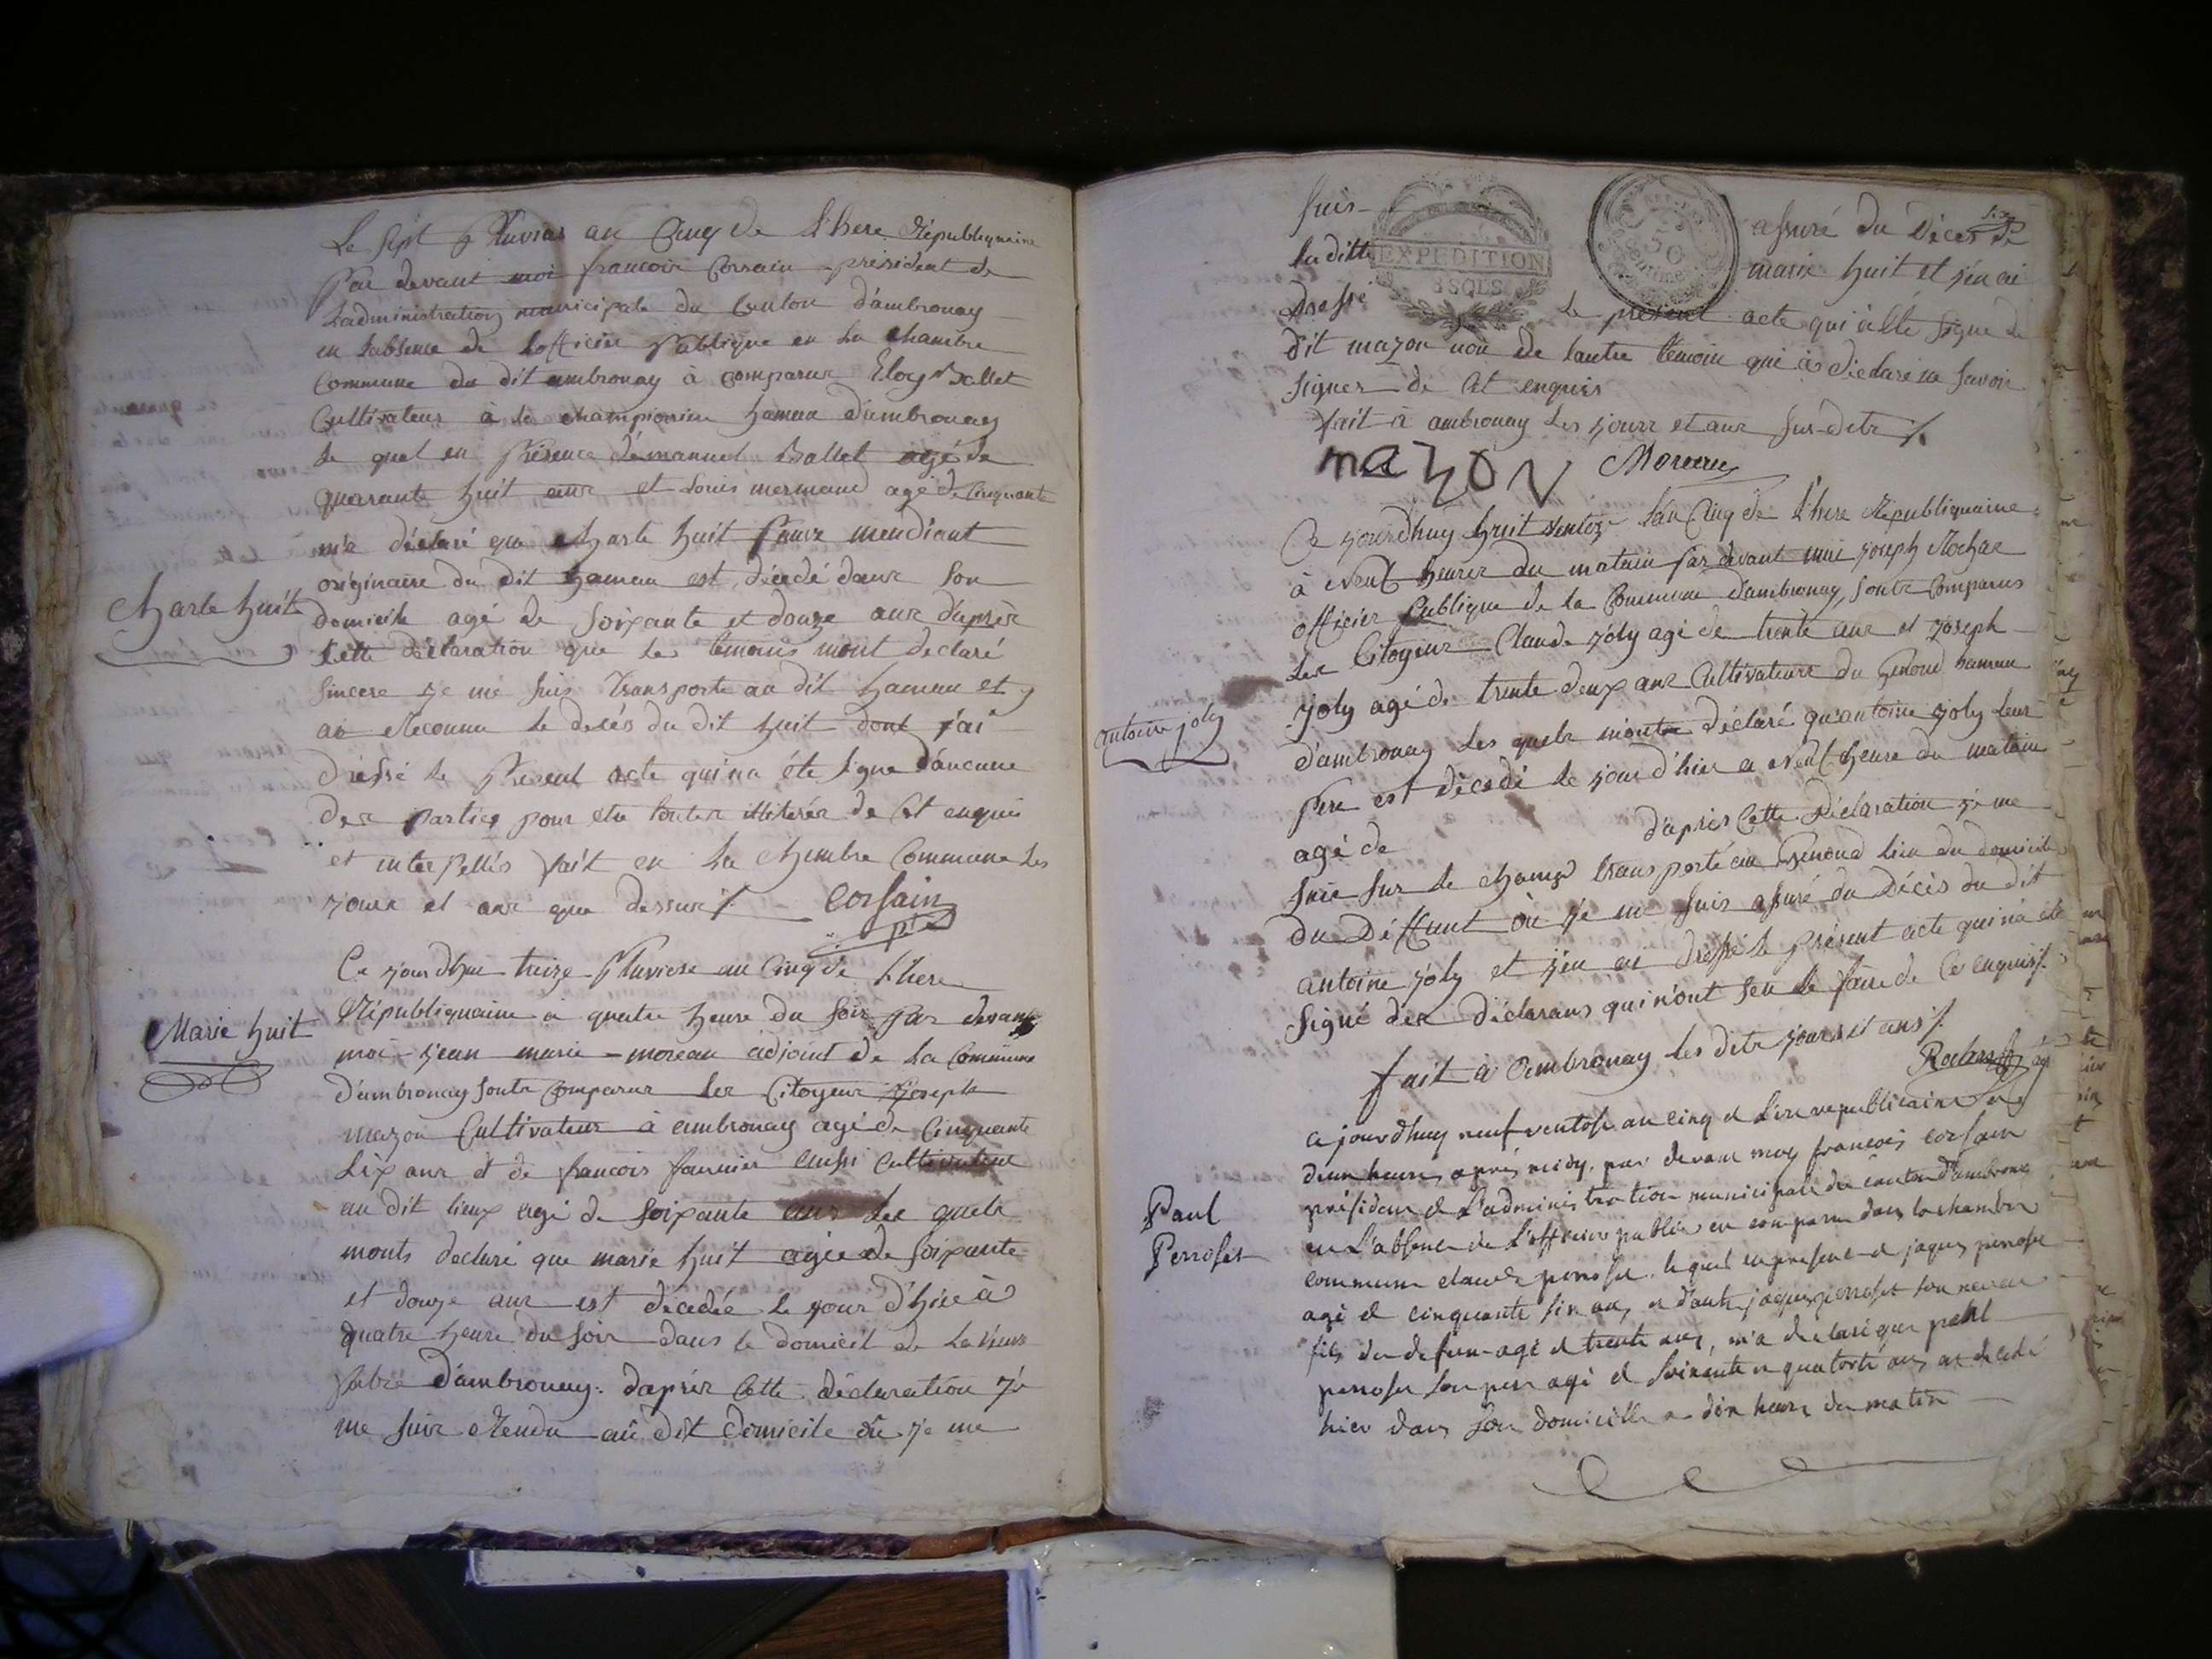 Le sept Pluvios an Cinq de Lhere Républiquaine
Par devant moi francois Corsain président de
Ladministration municipale du Canton d'ambronay
en Labsence de Lofficier Publique en La chambre
Commune du dit ambronay à comparur Eloy Ballet
Cultivateur à la championiere hameau d'ambronay
Le quel en Présence démanuel Ballet agé de
quarante huit anz et Louis mermand agé de Cinquante
m'a déclaré que charle huit Pauvr mendiant
originaire du dit hameau est décédé danz son
Charle huit
domicile agé de soixante et douze anz d'après
Cette déclaration que les témoins mont declaré
sincere je me suis transporté au dit hameau et y
ai Reconnu le decés du dit huit dont j'ai
dressé le Present acte qui na été signé d'aucune
der partiez pour etre touter illiterér de Cet enquis
et interpellés fait en La chambre Commune les
jourr et anz que dessur /. Corsain
pt
Ce jourdhui treize Pluviose an Cinq de Lhere
Marie huit
Républiquaine à quatre heure du soir Par devant
moi jean marie moreau adjoint de La Commune
d'ambronay sontz Comparur Ler Citoyenr joseph
mazon Cultivateur à ambronay agé de Cinquante
six anz et de francois fournier aussi Cultivateur
au dit lieux agé de soixante anz Les quelz
monts declaré que marie huit agée de soixante
et douze anz est décedée le jour d'hier à
quatre heure du soir dans le domicil de La
fabre d'ambronay. d'après Cette déclaration je
me suis Rendu au dit domicile où je me
suis assuré du Décès de
EXPEDITION
3 SOLS
50
Centimes
La ditte marie huit et j'en ai
dressé le présent acte qui à été signé du
dit mazon non de Lautre témoin qui à déclaré ne savoir
signer de Cet enquis
fait à ambronay Les jourr et anz sus ditz /.
mazon Moreau
Ce jourdhuy huit ventoz Lan Cinq de Lhere Républiquaine
à neuf heures du matain par devant moi joseph Rochae
officier Publique de la Commune d'ambronay, sontz Comparus
Les Citoyenz Claude joly agé de trente anz et joseph
joly agé de trente deux anz Cultivateurs du Genoud hameau
antoine joly
d'ambronay Les quelz montz déclaré qu'antoine joly leur
Pere est décedé le jour d'hier a neuf heure du matain
agé de d'après Cette Déclaration je me
suis sur le champ transporté au Genoud Lieu du domicile
du Deffunt où je me suis assuré du Décès du dit
antoine joly et j'en ai dressé le présent acte qui na été
signé der Déclarans qui n'ont seu le faire de Ce enquis /.
fait à ambronay les ditz jours et ans /.
ajourdhuy neuf ventose an cinq de Lere republicaine
deux heures après midy, par devant moy francois corsain
présidant de L'administration municipale du canton dambronay
Paul
Perroset
en L'absence de L'officier public en comparu dans la chambre
commune claude perroset. le quel en presence de jaques perroset
agé de cinquante six ans, et d'autre jaques perroset son neveu
fils du defunt agé de trente ans, m'a declaré que paul
perroset son pere agé de soixante et quatorze ans est decedé
hier dans son domicille a dix heure du matin